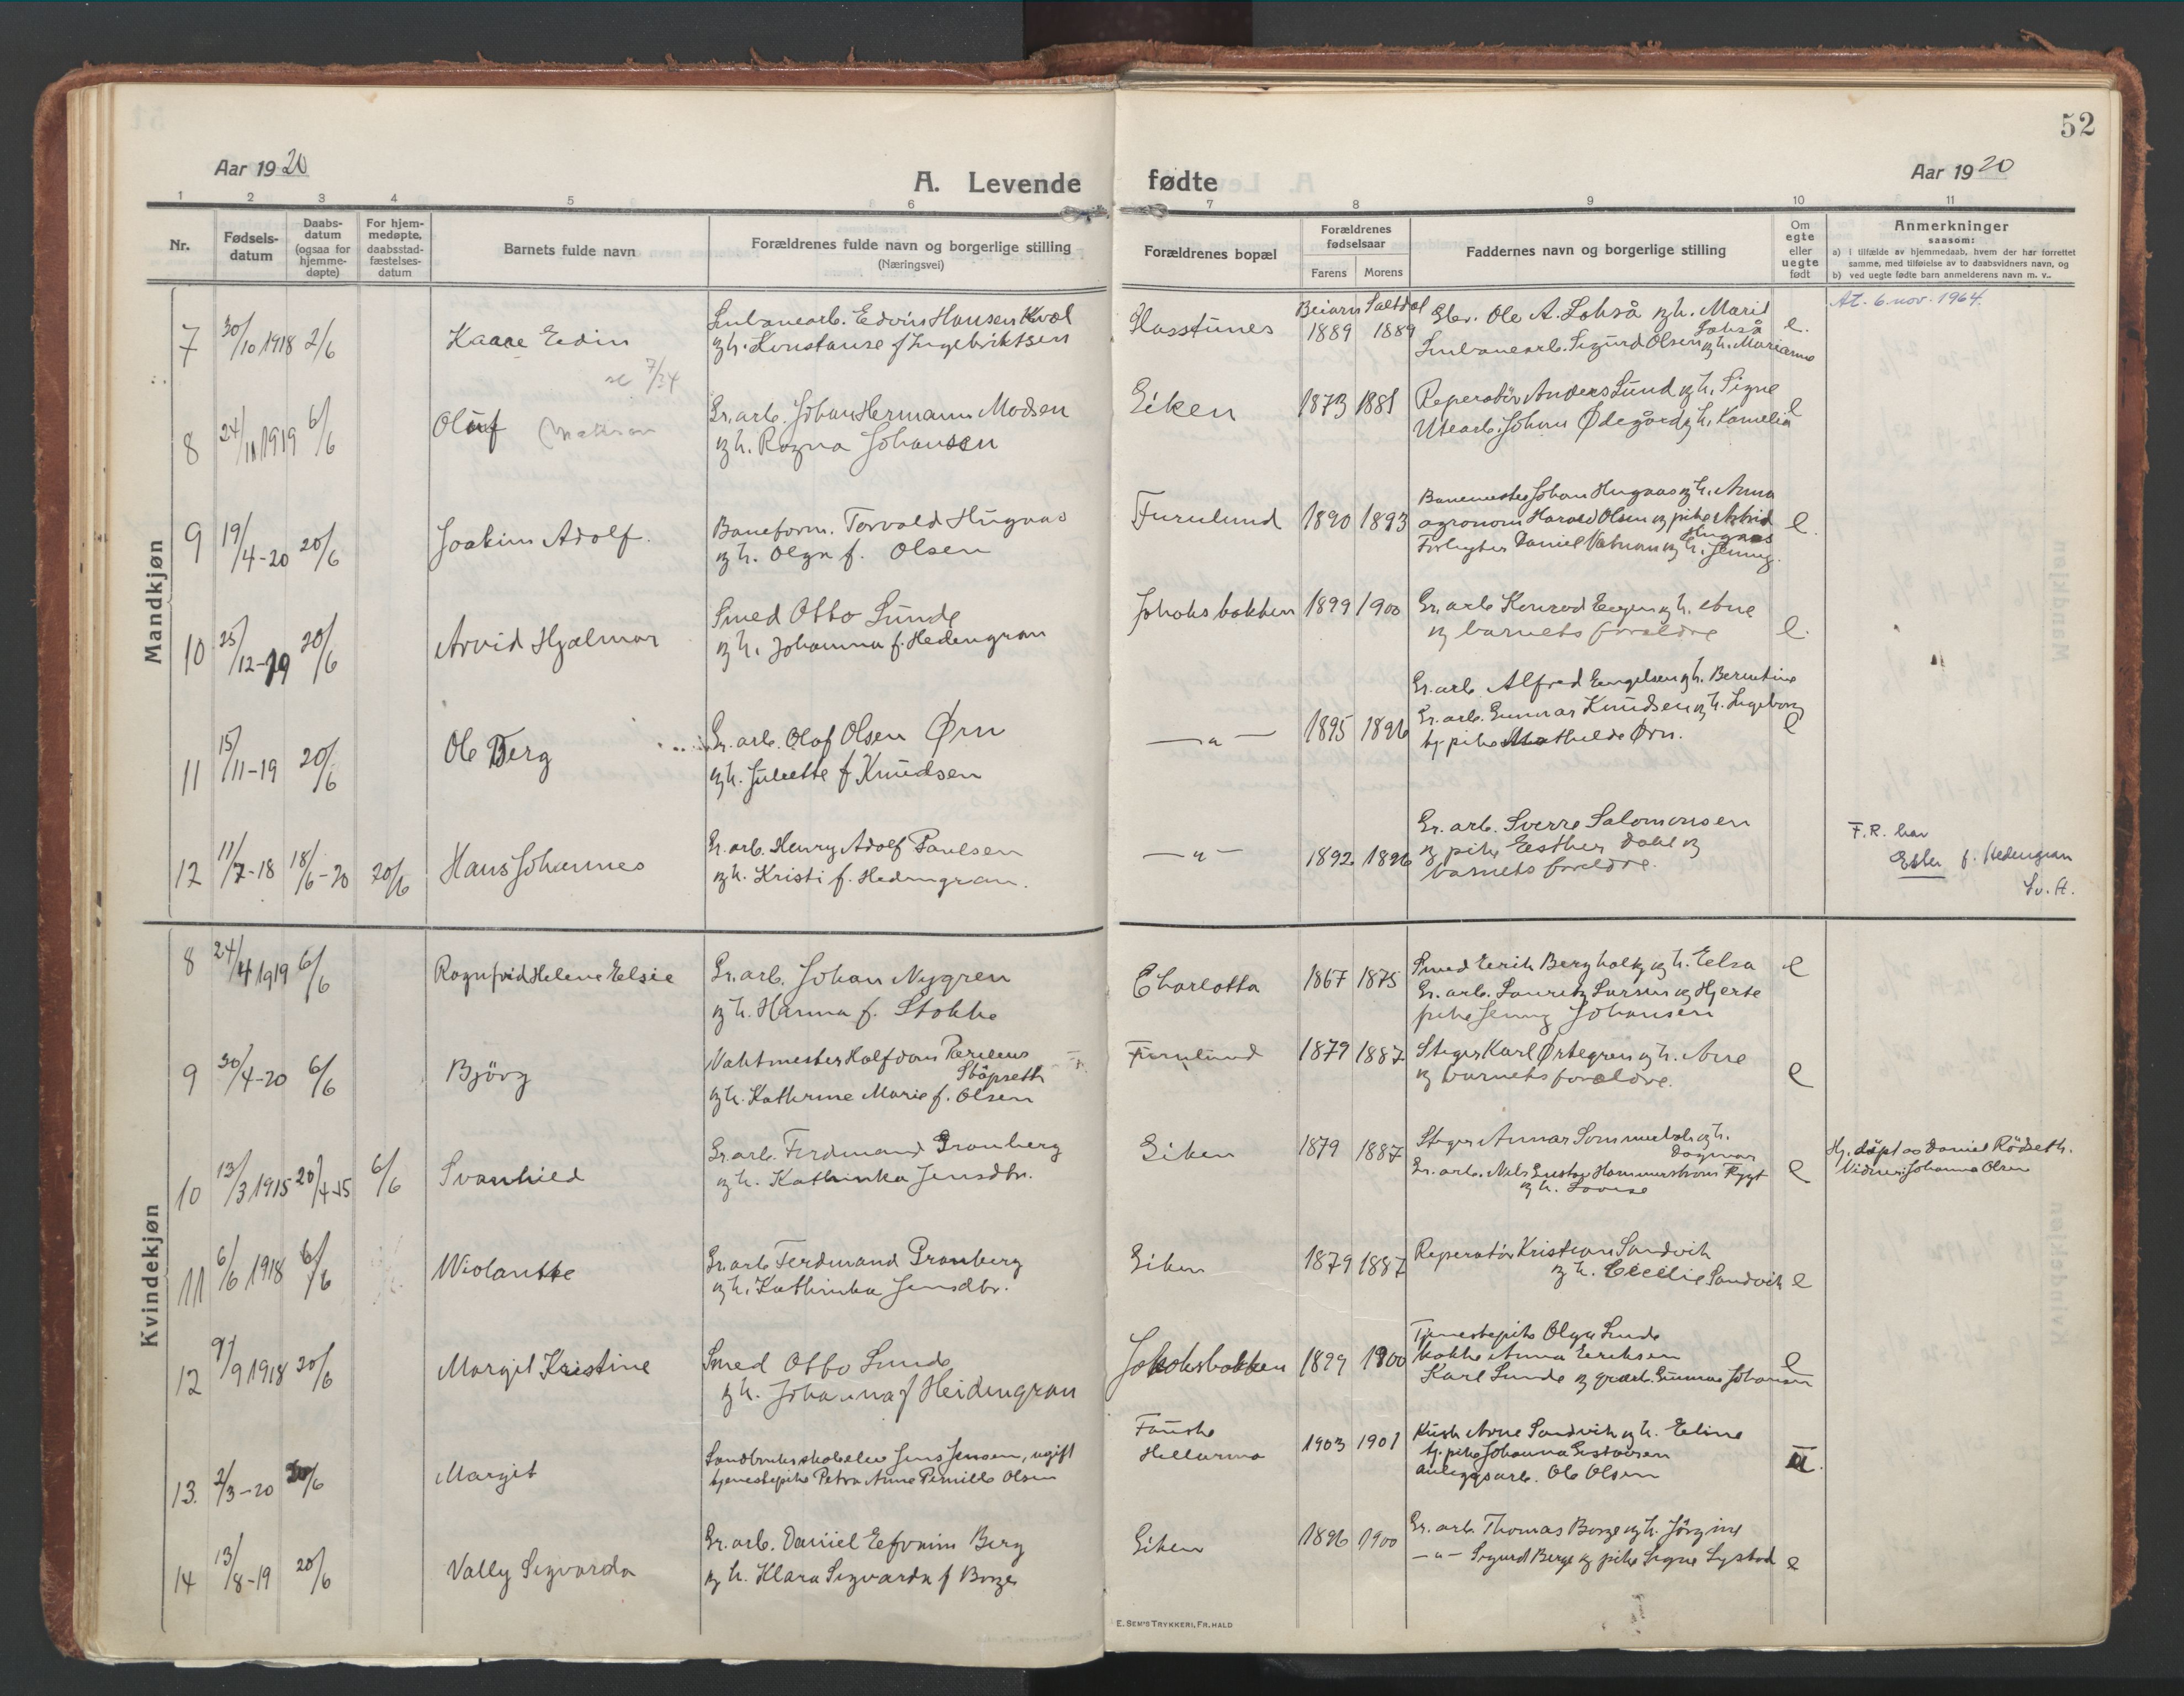 52
Aar 1920
A. Levende fødte
Aar 1920
1 2 3 4 5 6 7 8 9 10 11
Nr.
Fødsels-
datum
Daabs-
datum
(ogsaa for
hjemme-
døpte)
For hjem-
medøpte,
daabsstad-
fæstelses-
datum
Barnets fulde navn
Forældrenes fulde navn og borgerlige stilling
(Næringsvei)
Forældrenes bopæl
Forældrenes
fødselsaar
Farens Morens
Faddernes navn og borgerlige stilling
Om
egte
eller
uegte
født
Anmerkninger
saasom:
a) i tilfælde av hjemmedaab, hvem der har forrettet
samme, med tilføielse av to daabsvidners navn, og
b) ved uegte fødte barn anmelderens navn m. v..
Mandkjøn
7 30/10 1918 2/6 Kaare Edin
Edvin Hansen Kvæl
f Ingebriktsen
Beiarn Saltdal
1889 1889
Ole A. Lohså og h. Marit
Lohså
Sigurd Olsen og h. Marianne
e.
At. 6. nov. 1964.
7/34
8 24/11 1919 6/6 Oluf
Gr. arb. Johan Hermann Madsen
og h. Ragna Johansen
Giken 1873 1881
Reperatör Anders Lund og h. Signe
Utearb. Johan Ødegård og h. Kornelia
e
9 19/4-20 20/6 Joakim Adolf.
Baneform. Torvald Hugaas
og h. Olga f. Olsen
Furulund 1890 1893
Banemester Johan Hugaas og h. Anna
agronom Harald Olsen og pike Astrid
Hugaas
Daniel Vatnan og h. Jenny.
e.
10 25/12-19 20/6 Arvid Hjalmar
Smed Otto Sunde
og h. Johanna f. Hedengran
Jakobsbakken 1899 1900
Gr. arb Konrad og h. Ane
og barnets foreldre
e.
11 15/11-19 20/6 Ole Berg
Gr. arb. Olaf Olsen Ørn
og h. Juliette f Knudsen
— " — 1895 1896
Gr. arb. Alfred Engelsen og h. Berntine
Gr. arb. Gunnar Knudsen og h. Ingeborg
tj. pike Mathilde Ørn.
e
12 11/7-18 18/6-20 20/6 Hans Johannes
Gr. arb. Henry Adolf Paulsen
og h. Kristi f. Hedengran.
— " — 1892 1896
Gr. arb. Sverre Salomonsen
og pike Esther Dahl og
barnets foreldre.
F. R. har
Ester f. Hedengran
Kvindekjøn
8 24/4 1919 6/6 Ragnfrid Helene Elsie
Gr. arb. Johan Nygren
og h. Hanna f. Stokke
Charlotta 1867 1875
Smed Erik Bergholtz og h. Elsa
Gr. arb. Lauritz Larsen og Hjerte
pike Jenny Johansen
e
9 30/4-20 6/6 Björg
Vaktmester Halfdan
Støpseth
og h. Kathrine Marie f. Olsen
Furulund 1879 1887
Stiger Karl Ørtegren og h. Ane
og barnets foreldre.
e
10 13/3 1915 20/4-15 6/6 Svanhild
Gr arb. Ferdinand Granberg
og h. Kathinka Jensdtr.
Giken 1879 1887
Stiger Annar og h.
Dagmar
Gr. arb. Nils Gustav Hammerstrøm
og h. Lovise
e
Hj. døpt av Daniel Rödseth.
Vidner: Johanna Olsen
11 6/6 1918 6/6 Wiolantte
Gr. arb Ferdinand Granberg
og h. Kathinka Jensdtr.
Giken 1879 1887
Reperatör Kristian Sandvik
og h. Cecilie Sandvik
e
12 9/9 1918 20/6 Margit Kristine
Smed Otto Sunde
og h. Johanna f Heidengran
Jakobsbakken 1899 1900
Tjenestepike Olga Sunde
Kokke Anna Eriksen
Karl Sunde og gr arb. Gunnar Johansen
e
13. 2/3-20 20/6 Margit
Landbruksskoleelev Jens Jensen, ugift
tjenestepike Petra Anne Pernille Olsen
Fauske
Hellarmo
1903 1901
Kusk Arne Sandvik og h. Eline
tj. pike Johanna Gustavsen
anleggsarb. Ole Olsen
u.
14 13/8-19 20/6 Vally Sigvarda
Gr. arb. Daniel Efraim Berg
og h. Klara Sigvarda f Borge
Giken 1896 1900
Gr. arb. Thomas Borge og h. Jörgine
— " — Sigurd Berge og pike Signe Lystad
e
E. SEM'S TRYKKERI, FR. HALD